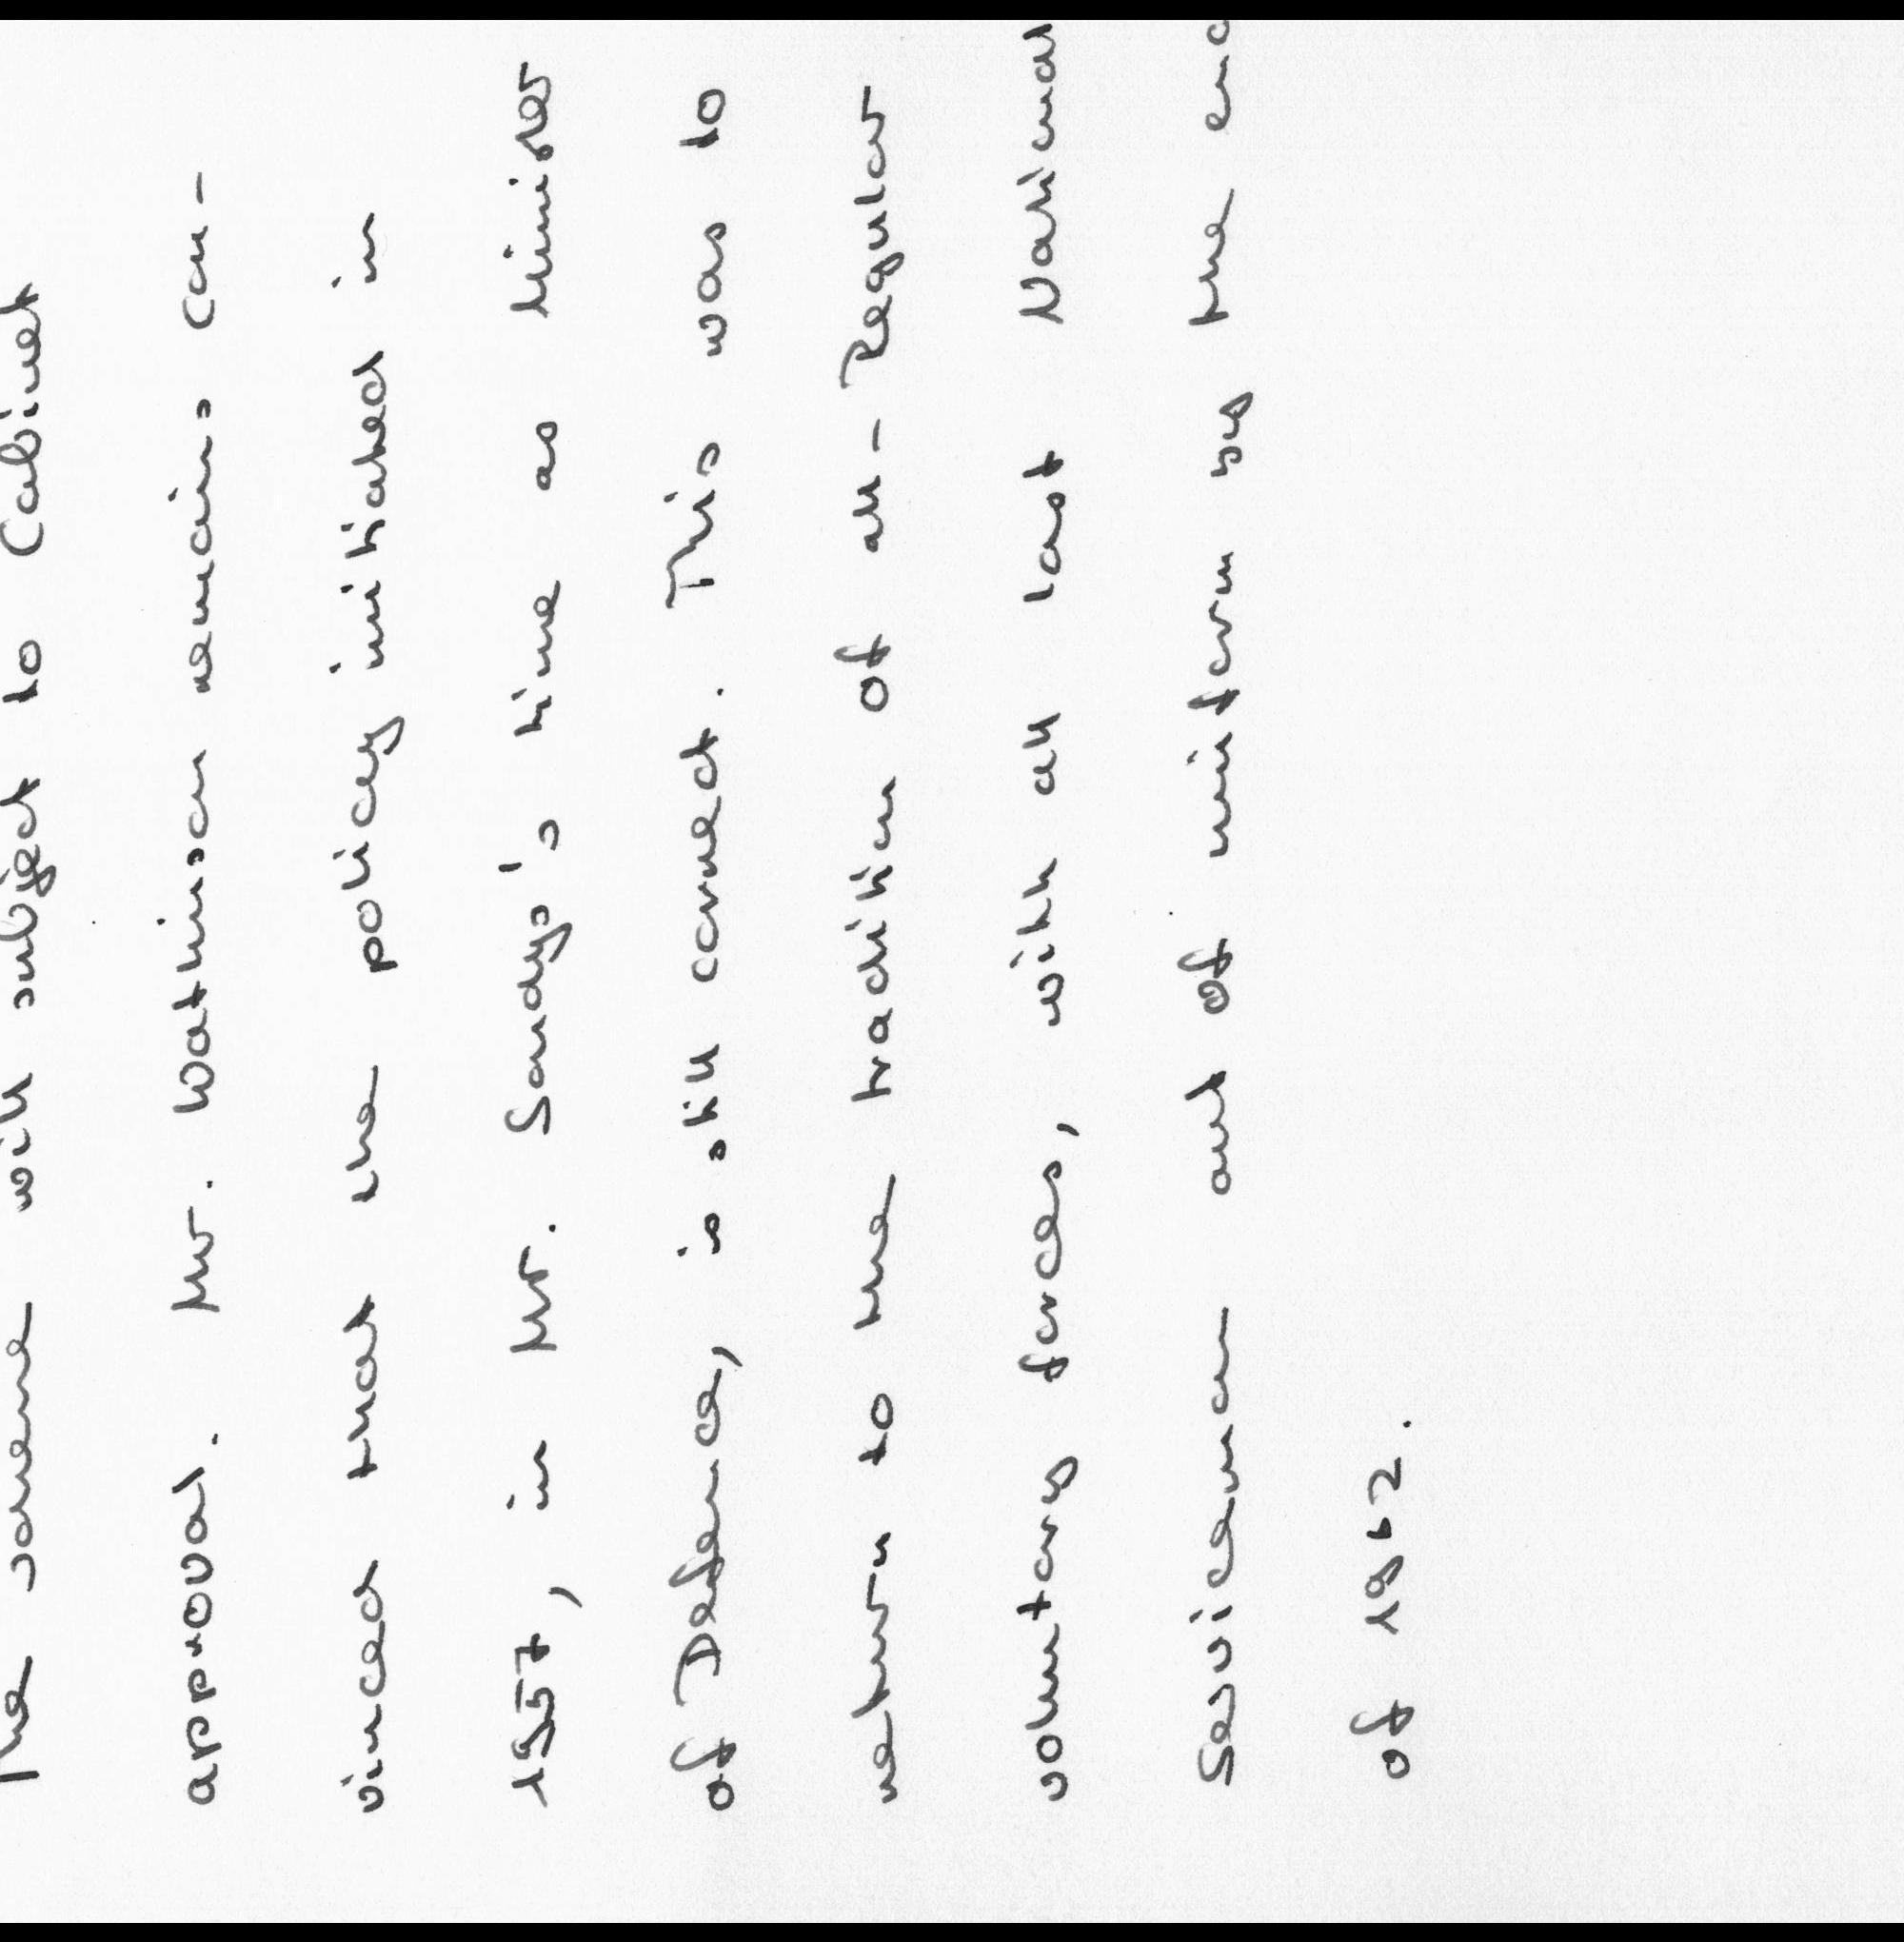 The scheme will subject to Cabinet
approval. Mr. Watkinson remains con-
vinced that the policy initiated in
1957, in Mr. Sandys's time as Minister
of Defence, is still correct. This was to
return to the tradition of all-Regular
voluntary forces, with all last National
Servicemen out of uniform by the end
of 1962.